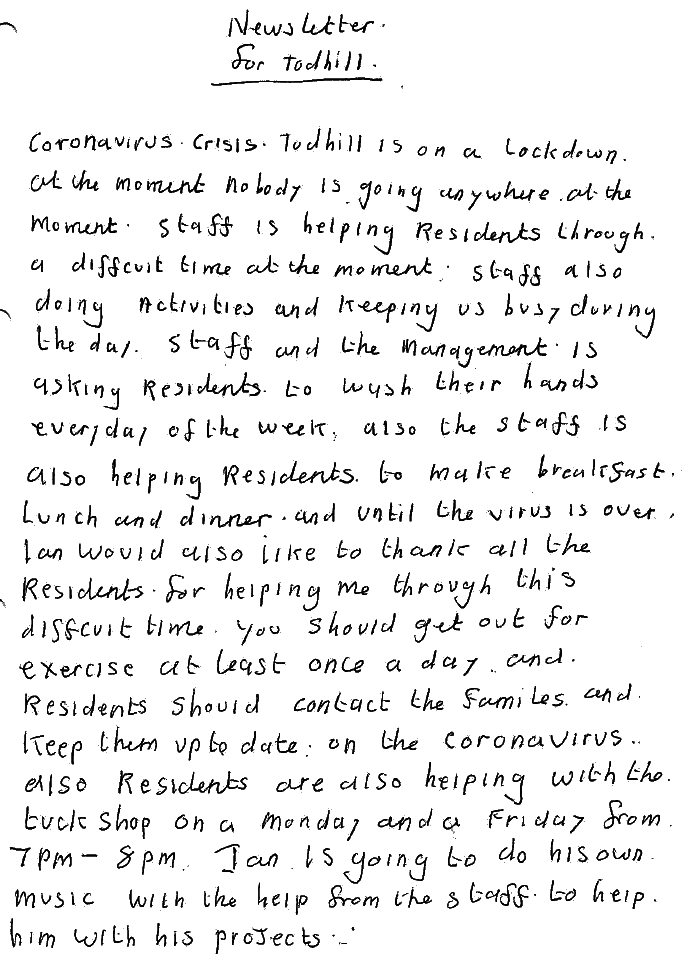 Newsletter.
for Todhill.
Coronavirus. Crisis. Todhill is on a Lockdown.
at the moment Nobody is going anywhere at the
Moment. Staff is helping Residents through.
a diffcult time at the moment. Staff also
doing Activities and keeping us busy during
the day. Staff and the Management is
asking Residents to wash their hands
everyday of the week, also the staff is
also helping Residents. to make breakfast.
Lunch and dinner. and until the virus is over,
Ian would also like to thank all the
Residents. for helping me through this
diffcult time. you should get out for
exercise at least once a day. and.
Residents should contact the Familes. and.
Keep them up to date. on the Coronavirus..
also Residents are also helping with the.
tuck shop on a Monday and a Friday from.
7pm - 8pm. Ian is going to do his own
music with the help from the staff. to help.
him with his projects..